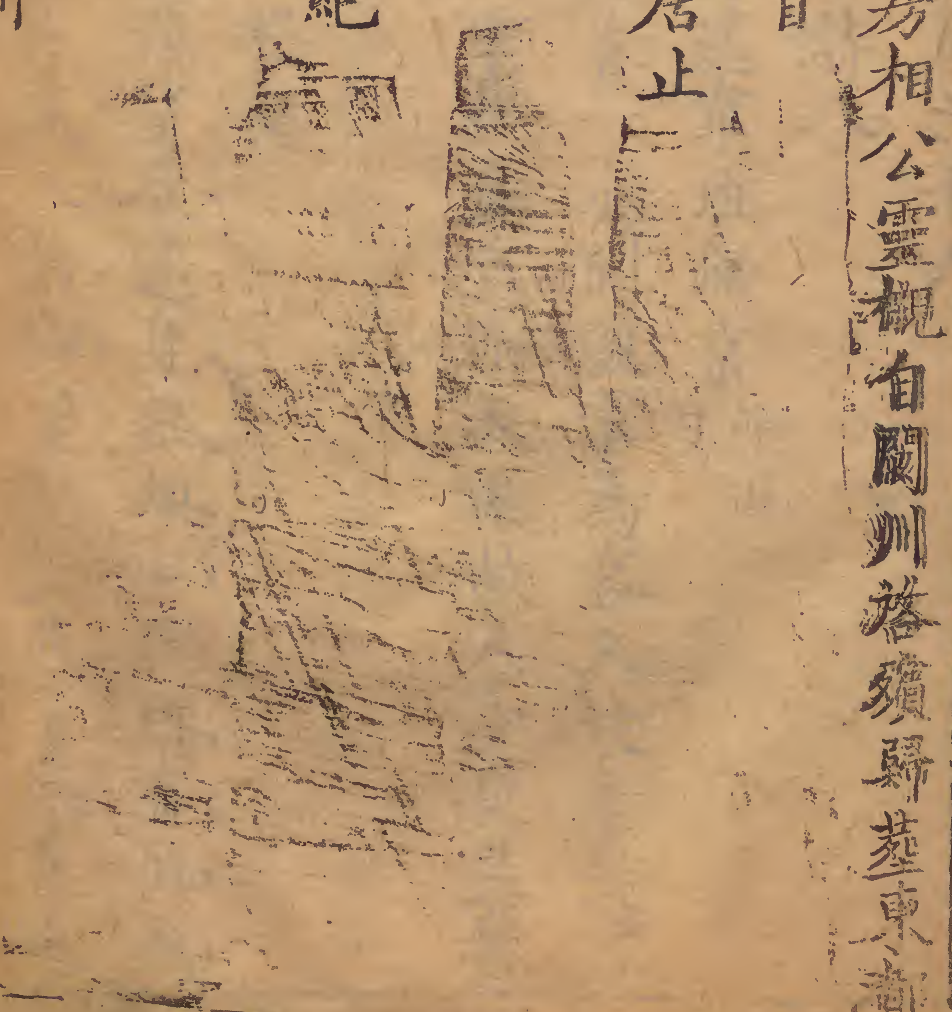 房相公靈櫬自閬州啓殯歸葬東都
首
居止
紀